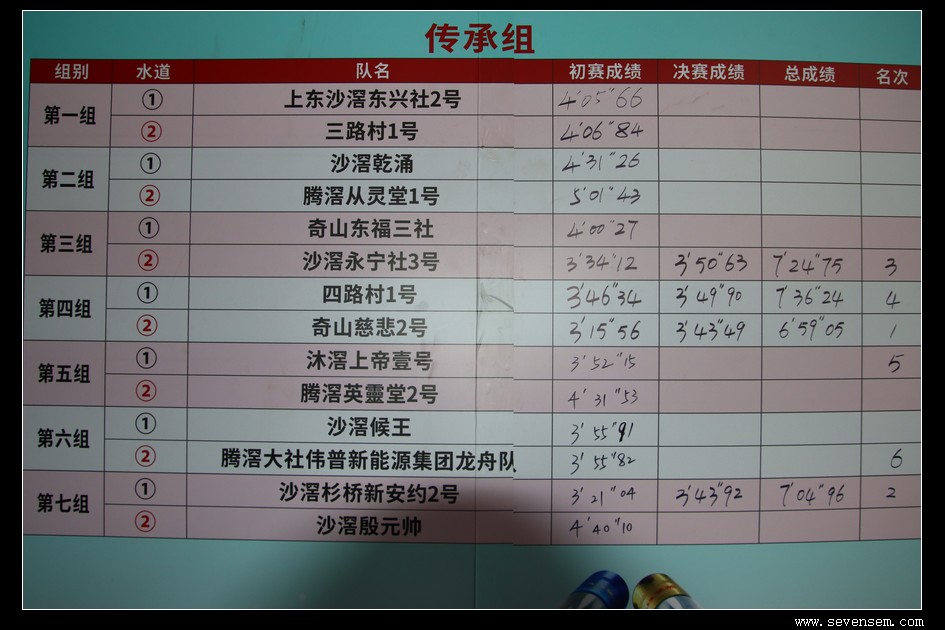 传承组
组别 水道 队名 初赛成绩 决赛成绩 总成绩 名次
第一组 ① 上东沙滘东兴社2号 4'05"66
② 三路村1号 4'06"84
第二组 ① 沙滘乾涌 4'31"26
② 腾滘从灵堂1号 5'01"43
第三组 ① 奇山东福三社 4'00"27
② 沙滘永宁社3号 3'34"12 3'50"63 7'24"75 3
第四组 ① 四路村1号 3'46"34 3'49"90 7'36"24 4
② 奇山慈悲2号 3'15"56 3'43"49 6'59"05 1
第五组 ① 沐滘上帝壹号 3'52"15 5
② 腾滘英靈堂2号 4'31"53
第六组 ① 沙滘候王 3'55"91
② 腾滘大社伟普新能源集团龙舟队 3'55"82 6
第七组 ① 沙滘杉桥新安约2号 3'21"04 3'43"92 7'04"96 2
② 沙滘殷元帅 4'40"10
www.sevensem.com